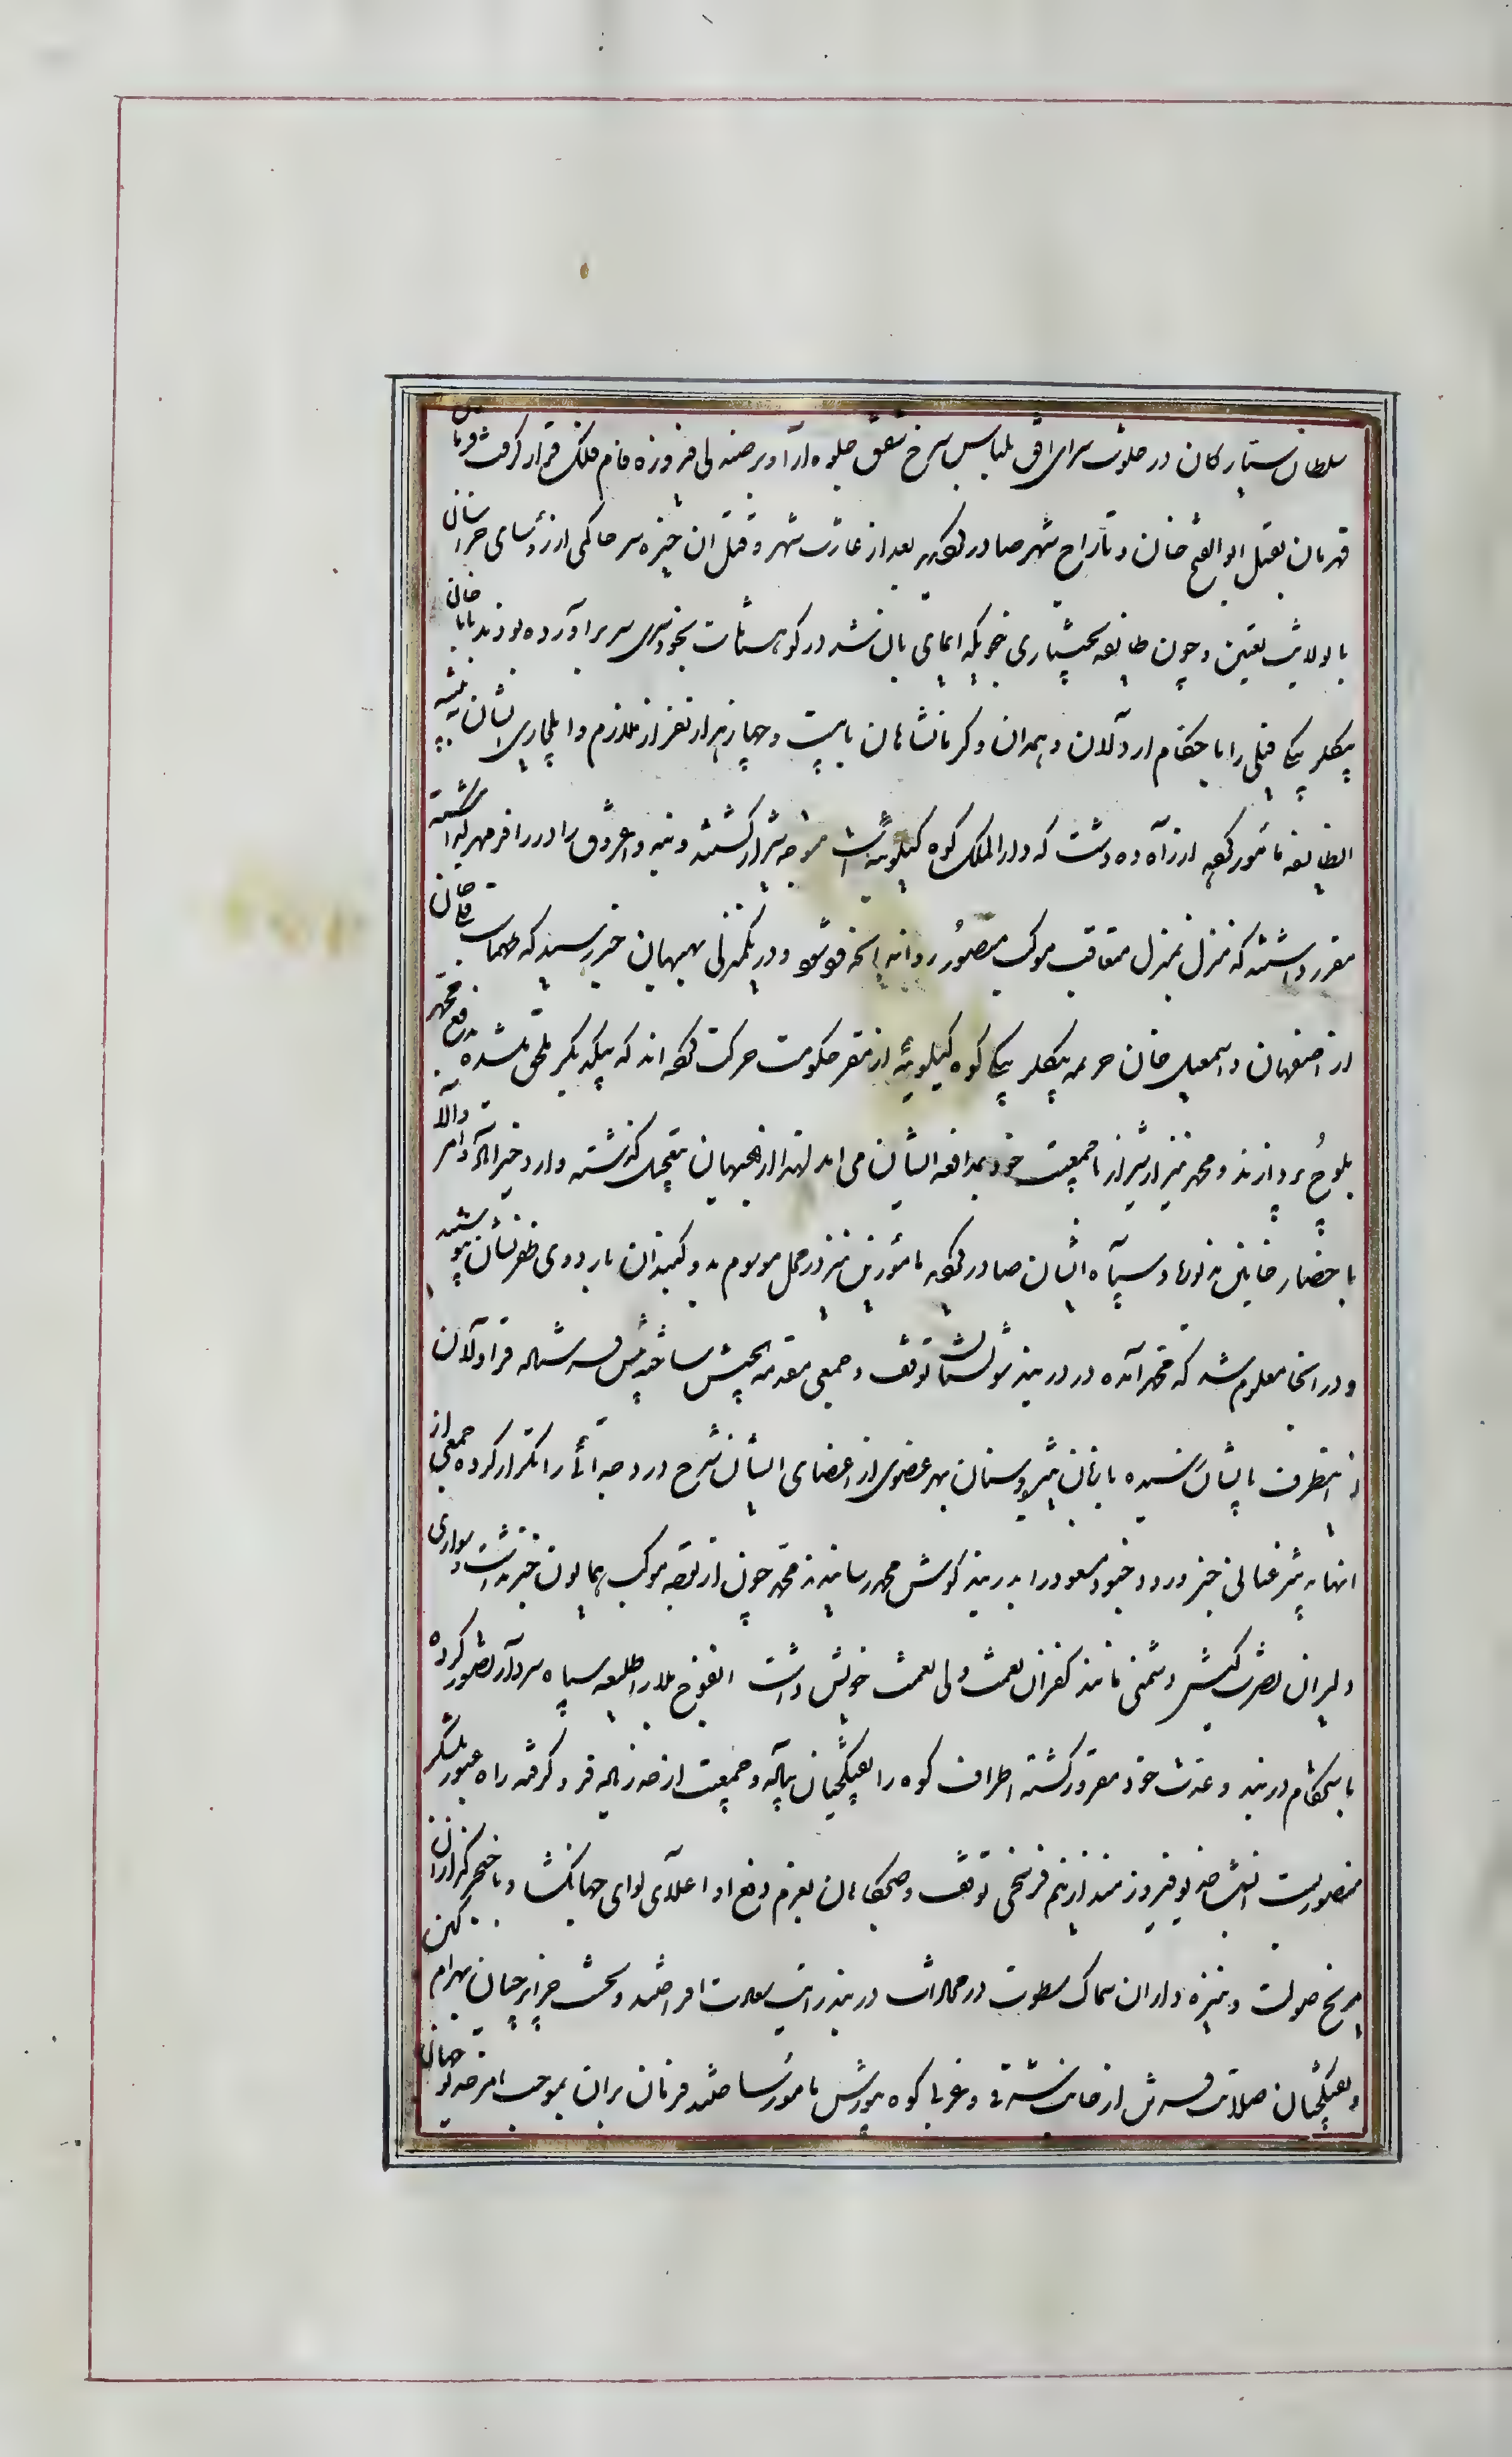 سلطان سیارگان در خلوت سرای افق بلباس سرخ شفق جلوه آرا و بر صندلی فیروزه فام فلک قرار گرفت فرمان
قهرمان بقتل ابوالفتح خان و تاراج شهر صادر بعد از غارت شهر و قتل آن خیره سر حاکمی از رؤسای خراسان
بولایت تعیین و چون طایفه بختیاری که ایمای بآن شد در کوهستانات بخودسری سر برآورده بودند بابا خان
بیکلربیکی فیلی را با حکام اردلان و همدان و کرمانشاهان با بیست و چهار هزار نفر از ملازم و ایلجاری ایشان به تنبیه
الطایفه مأمور از راه ده دشت که دارالملک کوه کیلویه است متوجه شیراز گشتند و بنه و اغروق را در رامهرمز گذاشته
مقرر داشتند که منزل بمنزل متعاقب موکب منصور روانه شود و در یکمنزلی بهبهان خبر رسید که طهماسب قلی خان
از اصفهان و اسمعیل خان خزیمه بیکلربیکی کوه کیلویه از مقر حکومت حرکت که بیکدیگر ملحق شده بدفع محمد
بلوچ پردازند و محمد نیز از شیراز با جمعیت خود بمدافعه ایشان می آید لهذا از بهبهان بتعجیل گذشته وارد خیرآباد و امر والا
باحضار خانین مزبور و سپاه ایشان صادر مأمورین نیز در محل موسوم به دو گنبدان باردوی ظفرنشان پیوستند
و در آنجا معلوم شد که محمد آمده در دربند شولستان توقف و جمعی مقدمة الجیش ساخته پیش فرستاده قراولان
از ینطرف بایشان رسیده با زبان تیر و سنان بهر عضوی از اعضای ایشان شرح درد جدائی را تکرار کرده جمعی از
آنها خبر ورود جنود مسعود را بدربند گوش محمد رسانیدند محمد چون از توجه موکب همایون خبر نداشت و سواری
دلیران نصرت کیش دشمنی مانند کفران نعمت ولی نعمت خویش داشت انفوج بلا را طلیعه سپاه سردار تصور کرده
باستحکام دربند و عدت خود مغرور گشته اطراف کوه را بتفنگچیان پیاده و جمعیت از حد زیاده فرو گرفته راه عبور بلشکر
منصور بست انشب خدیو فیروزمند از نیم فرسخی توقف و صبحگاهان بعزم دفع او اعلای لوای جهانگشا و با خنجرگذاران
مریخ صولت و نیزه داران سماک سطوت در محاذات دربند رایت سعادت افراختند و جزایرچیان بهرام کین
و تفنگچیان صلابت قرین از جانب شرقی و غربی کوه بیورش مأمور ساختند فرمان بران بموجب امر خدیو جهان